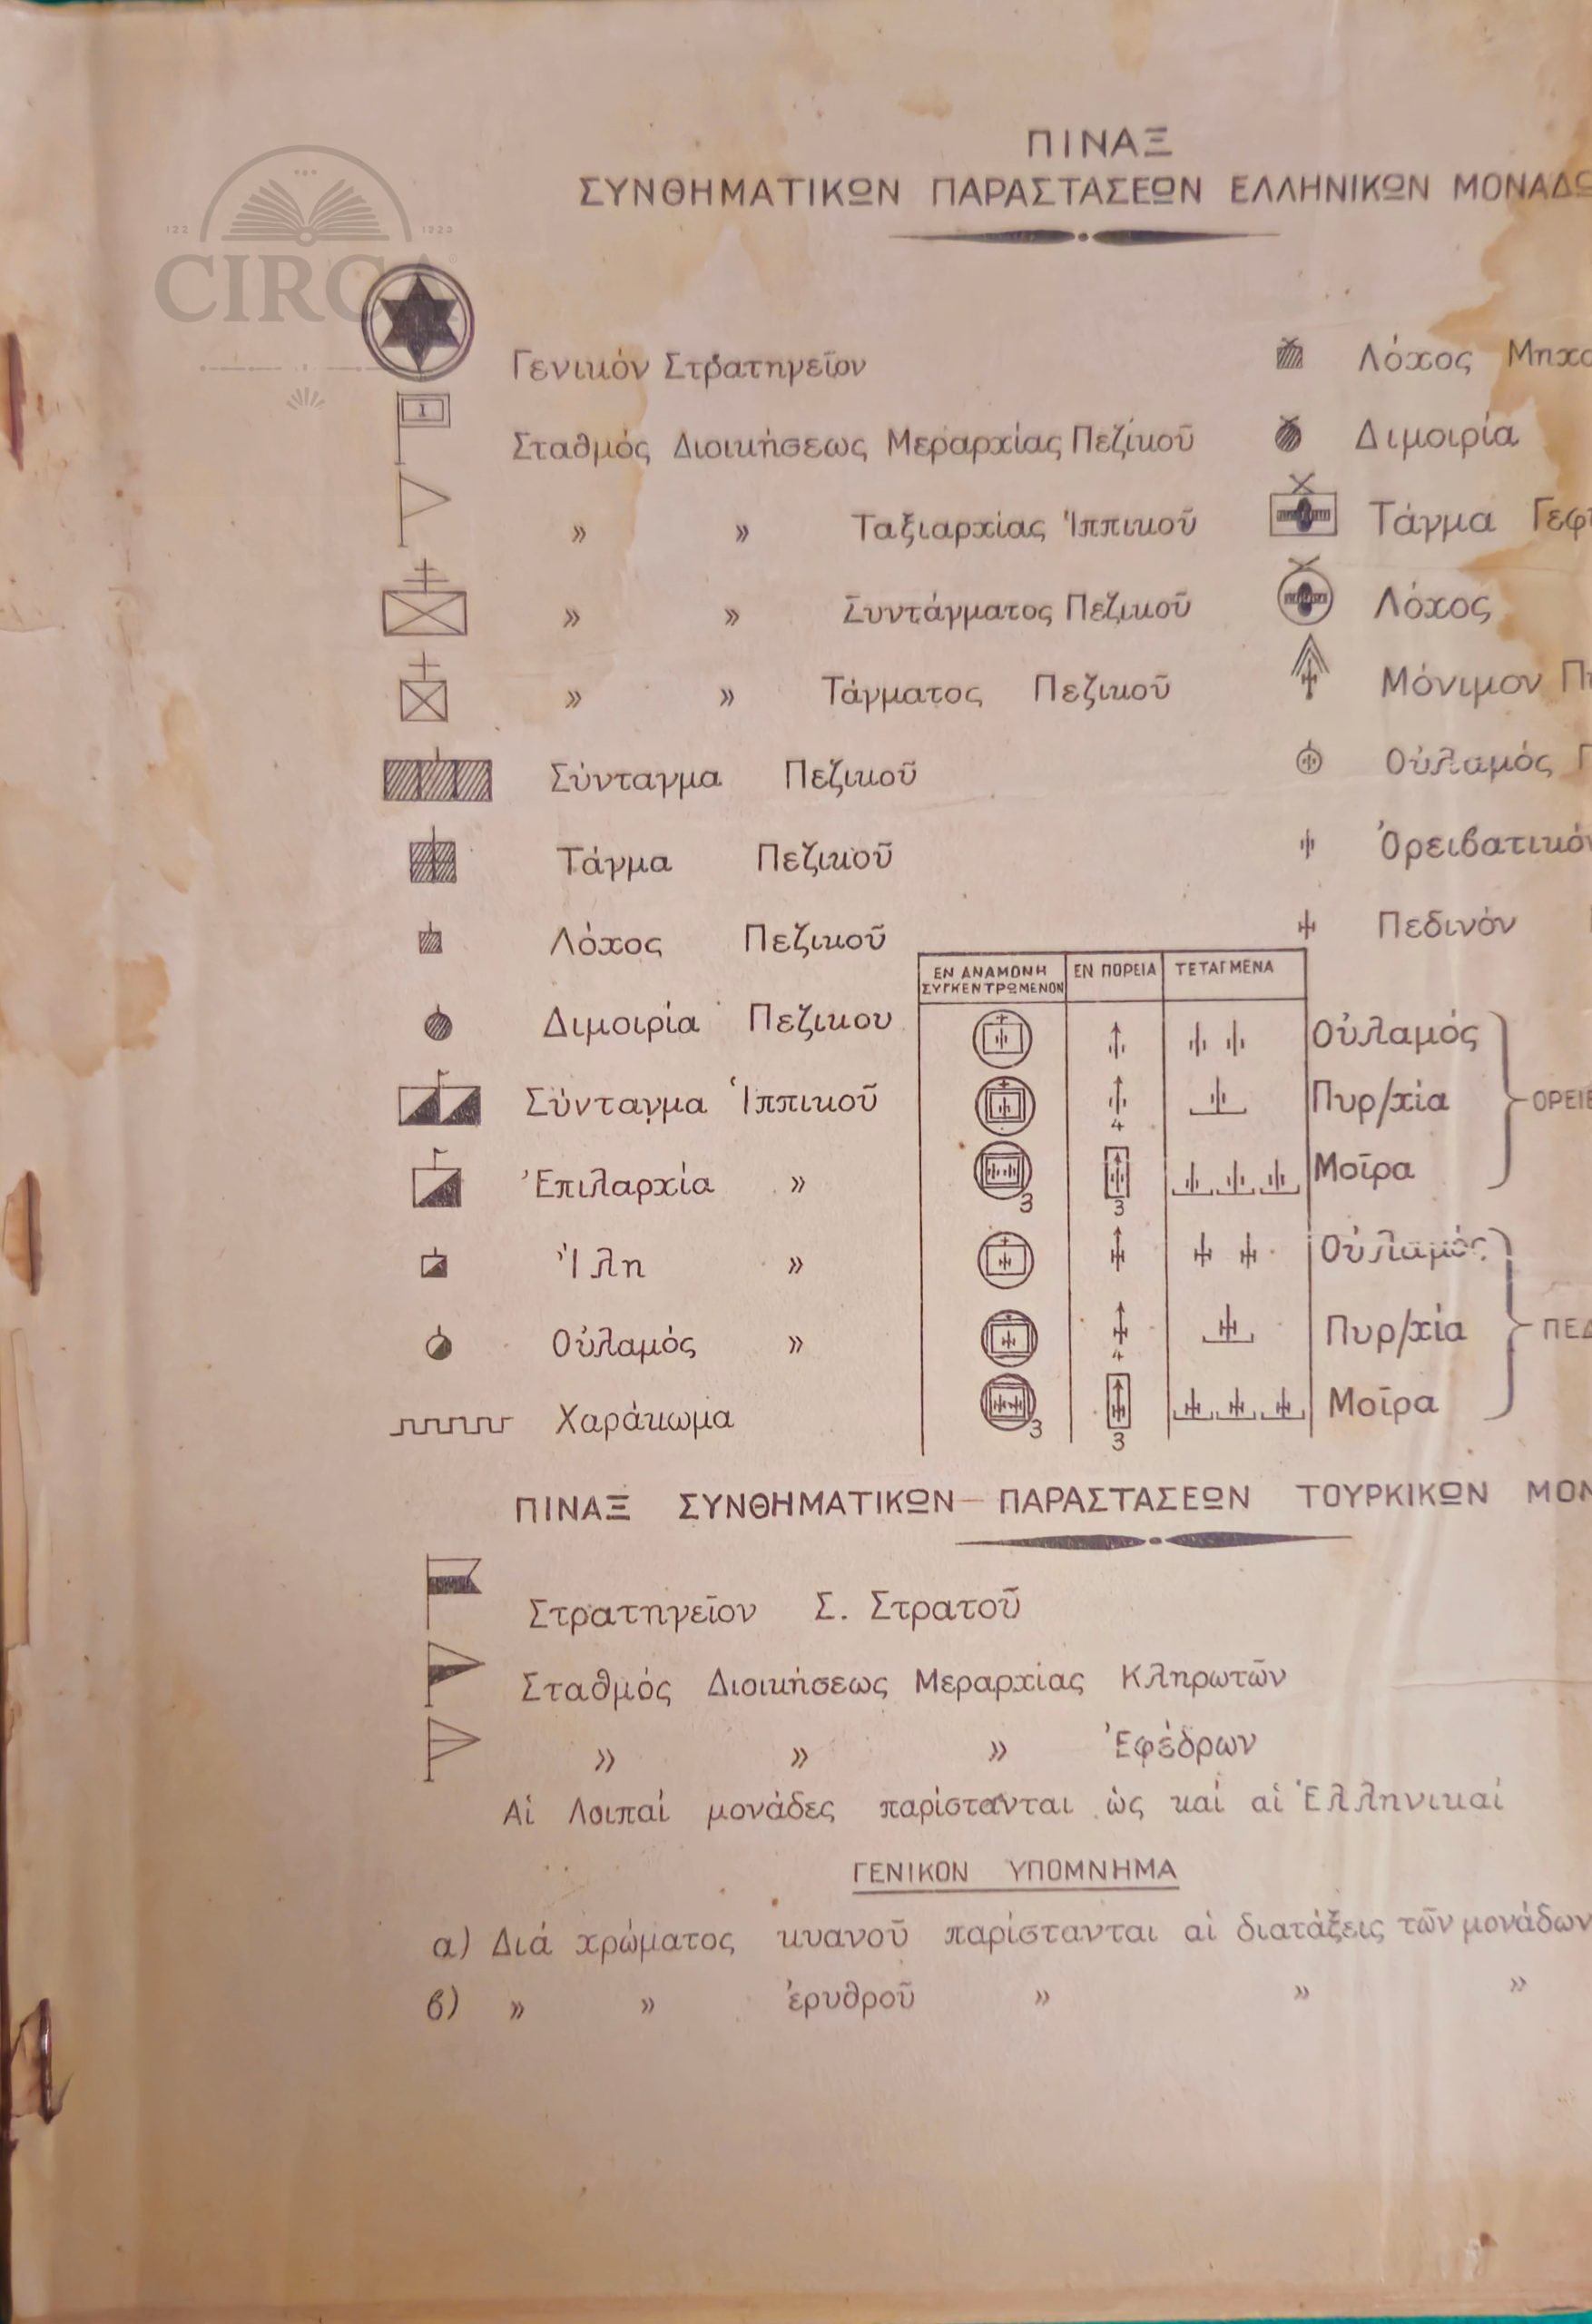 122 1923
CIRCA
ΠΙΝΑΞ
ΣΥΝΘΗΜΑΤΙΚΩΝ ΠΑΡΑΣΤΑΣΕΩΝ ΕΛΛΗΝΙΚΩΝ ΜΟΝΑΔΩ
Γενικόν Στρατηγεῖον
1
Σταθμός Διοικήσεως Μεραρχίας Πεζικοῦ
» » Ταξιαρχίας Ἱππικοῦ
» » Συντάγματος Πεζικοῦ
» » Τάγματος Πεζικοῦ
Σύνταγμα Πεζικοῦ
Τάγμα Πεζικοῦ
Λόχος Πεζικοῦ
Διμοιρία Πεζικου
Σύνταγμα Ἱππικοῦ
Ἐπιλαρχία »
Ἴλη »
Οὐλαμός »
Χαράκωμα
Λόχος Μηχα
Διμοιρία
Τάγμα Γεφ
Λόχος
Μόνιμον Π
Οὐλαμός Π
Ὀρειβατικόν
Πεδινόν
ΕΝ ΑΝΑΜΟΝΗ ΕΝ ΠΟΡΕΙΑ ΤΕΤΑΓΜΕΝΑ
ΣΥΓΚΕΝΤΡΩΜΕΝΟΝ
Οὐλαμός
4 Πυρ/χία ΟΡΕΙΒ
3 3 Μοῖρα
Οὐλαμός
4 Πυρ/χία ΠΕΔ
3 3 Μοῖρα
ΠΙΝΑΞ ΣΥΝΘΗΜΑΤΙΚΩΝ ΠΑΡΑΣΤΑΣΕΩΝ ΤΟΥΡΚΙΚΩΝ ΜΟΝ
Στρατηγεῖον Σ. Στρατοῦ
Σταθμός Διοικήσεως Μεραρχίας Κληρωτῶν
» » » Ἐφέδρων
Αἱ Λοιπαί μονάδες παρίστανται ὡς καί αἱ Ἑλληνικαί
ΓΕΝΙΚΟΝ ΥΠΟΜΝΗΜΑ
α) Διά χρώματος κυανοῦ παρίστανται αἱ διατάξεις τῶν μονάδων
β) » » ἐρυθροῦ » » »